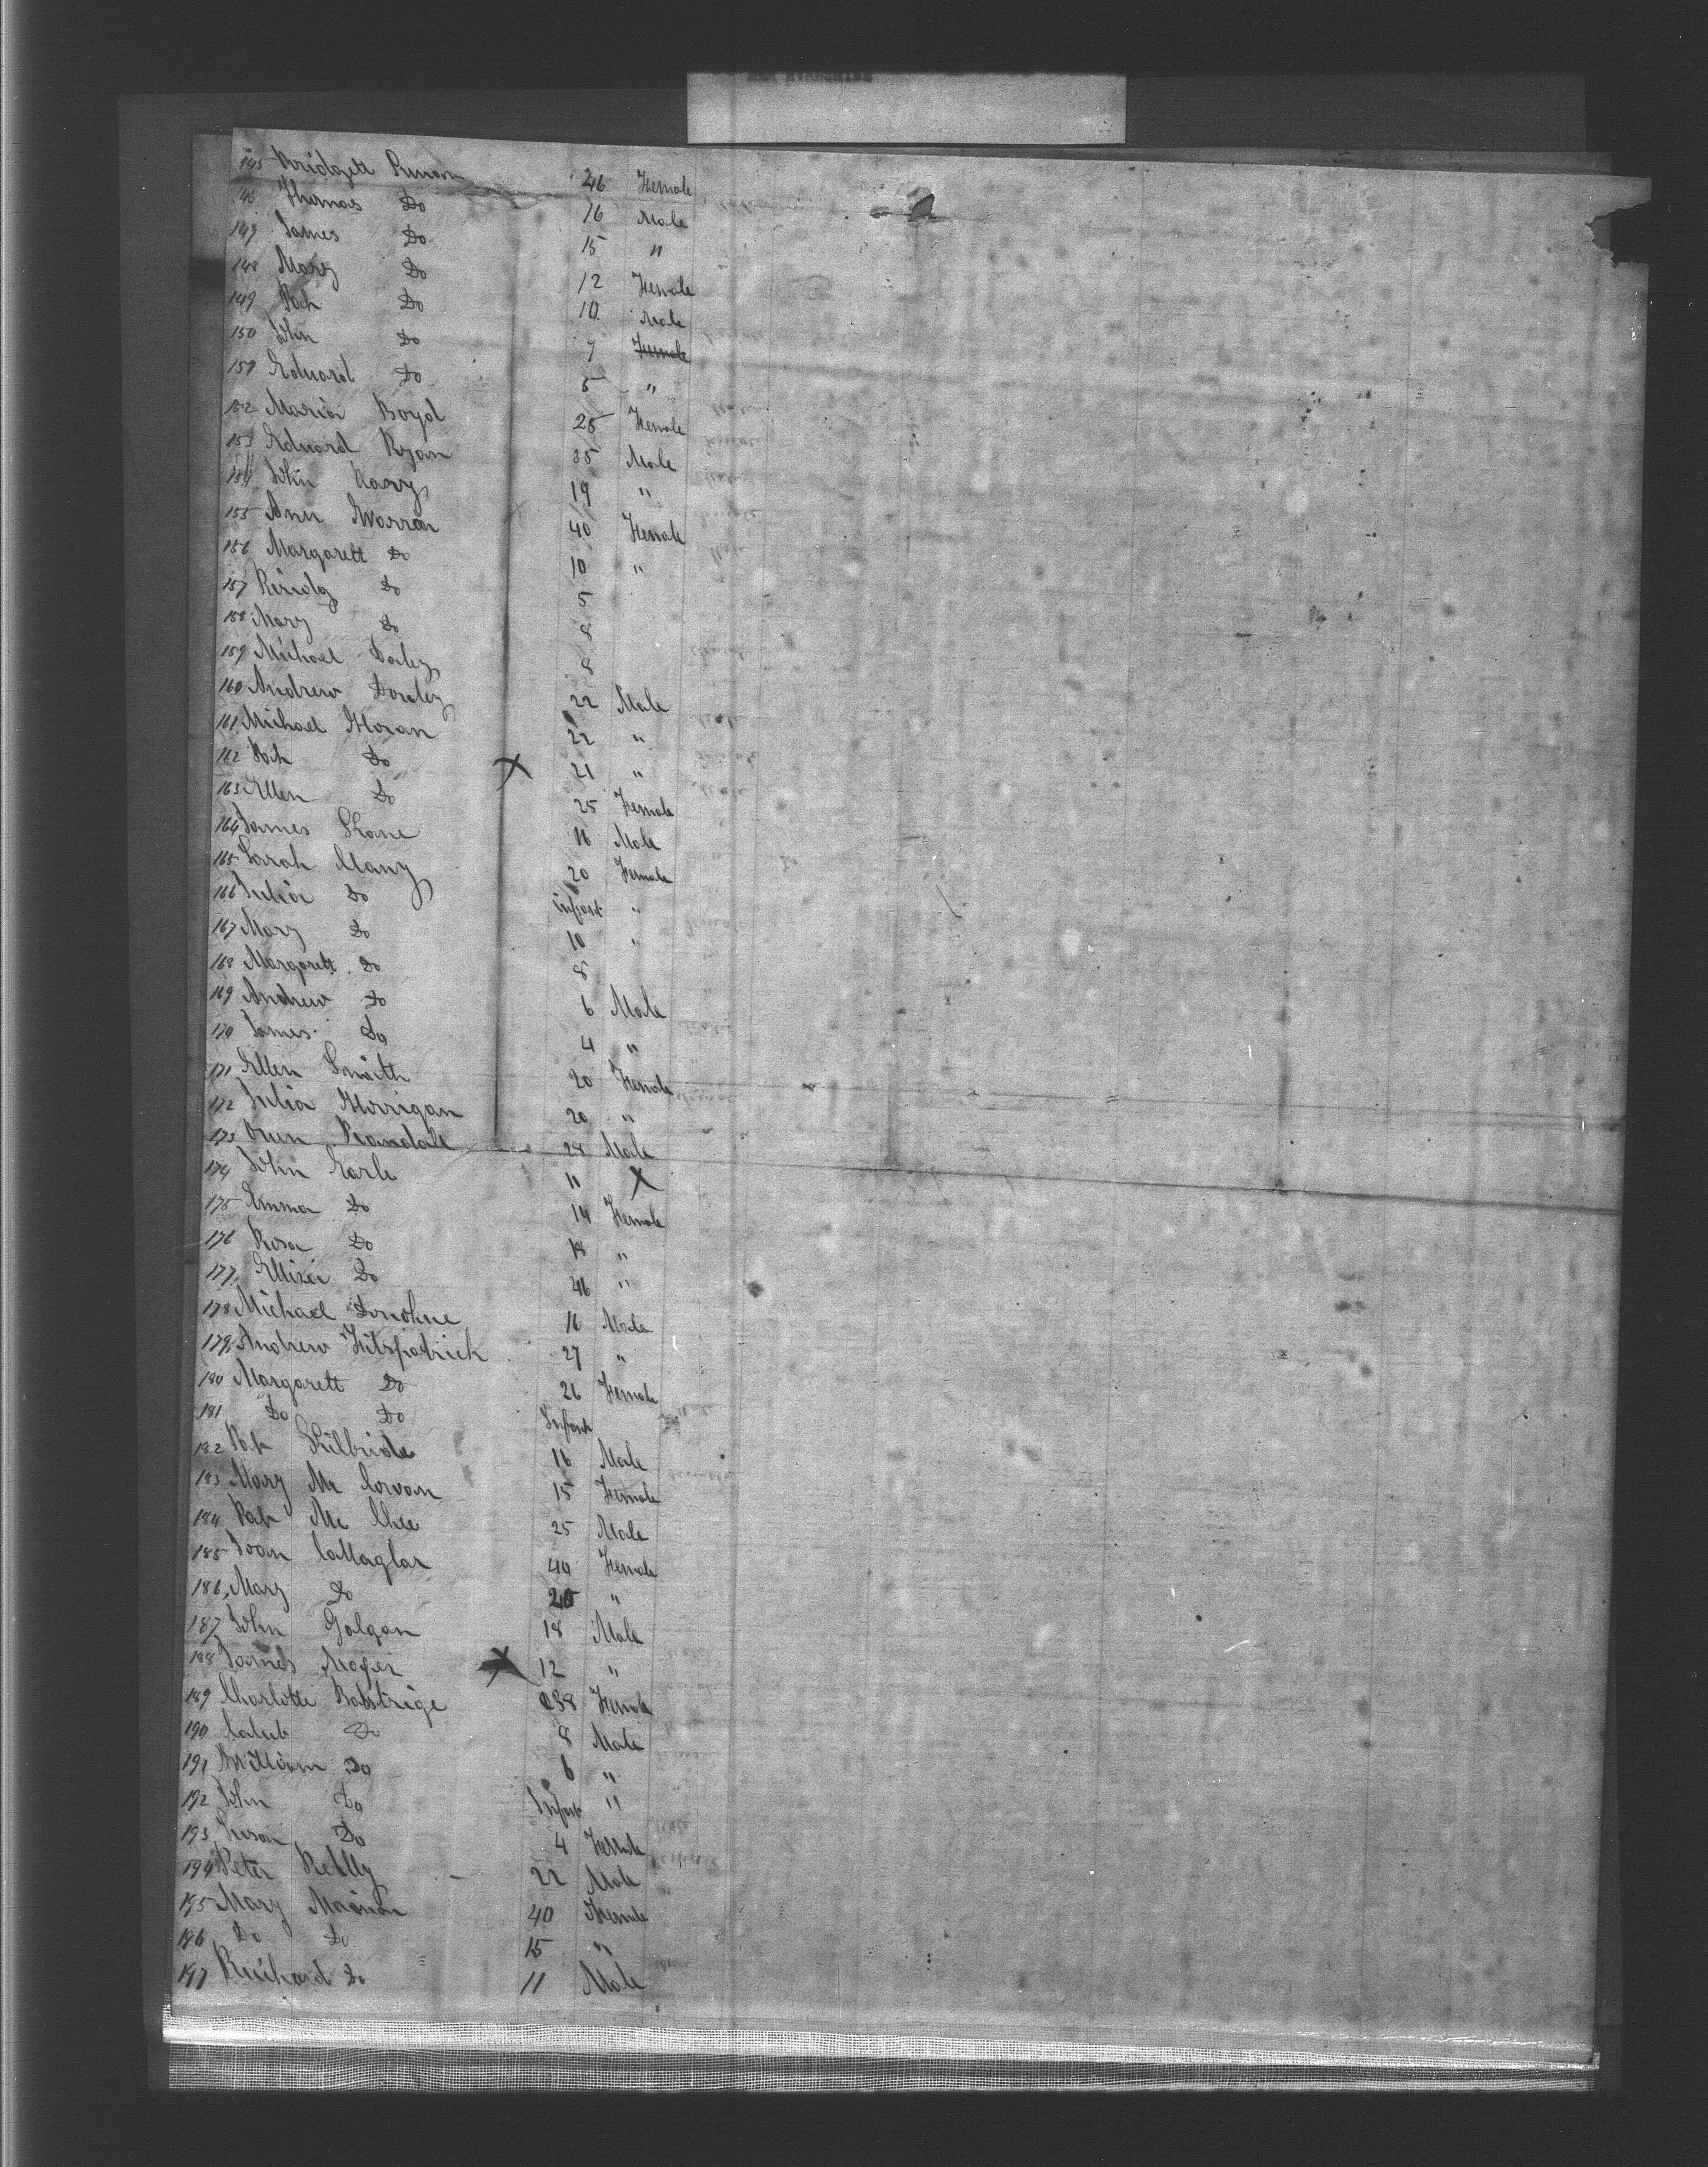 145 Bridgett 46 Female
46 Thomas Do 16 Male
147 James Do 15 "
148 Mary Do 12 Female
149 Pat Do 10 Male
150 John Do 7 Female
151 Edward Do 5 "
152 Maria Boyd 25 Female
153 Edward Ryan 35 Male
154 John 19 "
155 Ann 40 Female
156 Margarett Do 10 "
157 Do 5
158 Mary Do 8
159 Michael Daley 8
160 Andrew 22 Male
161 Michael Horan 22 "
162 Pat Do X 21 "
163 Ellen Do 25 Female
164 James Shane 16 Male
165 Sarah 20 Female
166 Julia Do infant "
167 Mary Do 10 "
168 Margarett Do 8
169 Andrew Do 6 Male
170 James Do 4 "
171 Ellen Smith 20 Female
172 Julia Horrigan 20 "
173 Owen 28 Male
174 John Earle 11 X
175 Emma Do 14 Female
176 Rosa Do 18 "
177 Do 46 "
178 Michael Donohue 16 Male
179 Andrew Fitspatrick 27 "
180 Margarett Do 26 Female
181 Do Do Infant
182 Pat 16 Male
183 Mary Mc 15 Female
184 Pat Mc 25 Male
185 40 Female
186 Mary Do "
187 John Galgan 18 Male
188 James X 12 "
189 Charlotte 38 Female
190 Do 8 Male
191 William Do 6 "
192 John Do Infant "
193 Do 4 Female
194 Peter Reilly 22 Male
195 Mary 40 Female
196 Do Do 15 "
197 Do 11 Male